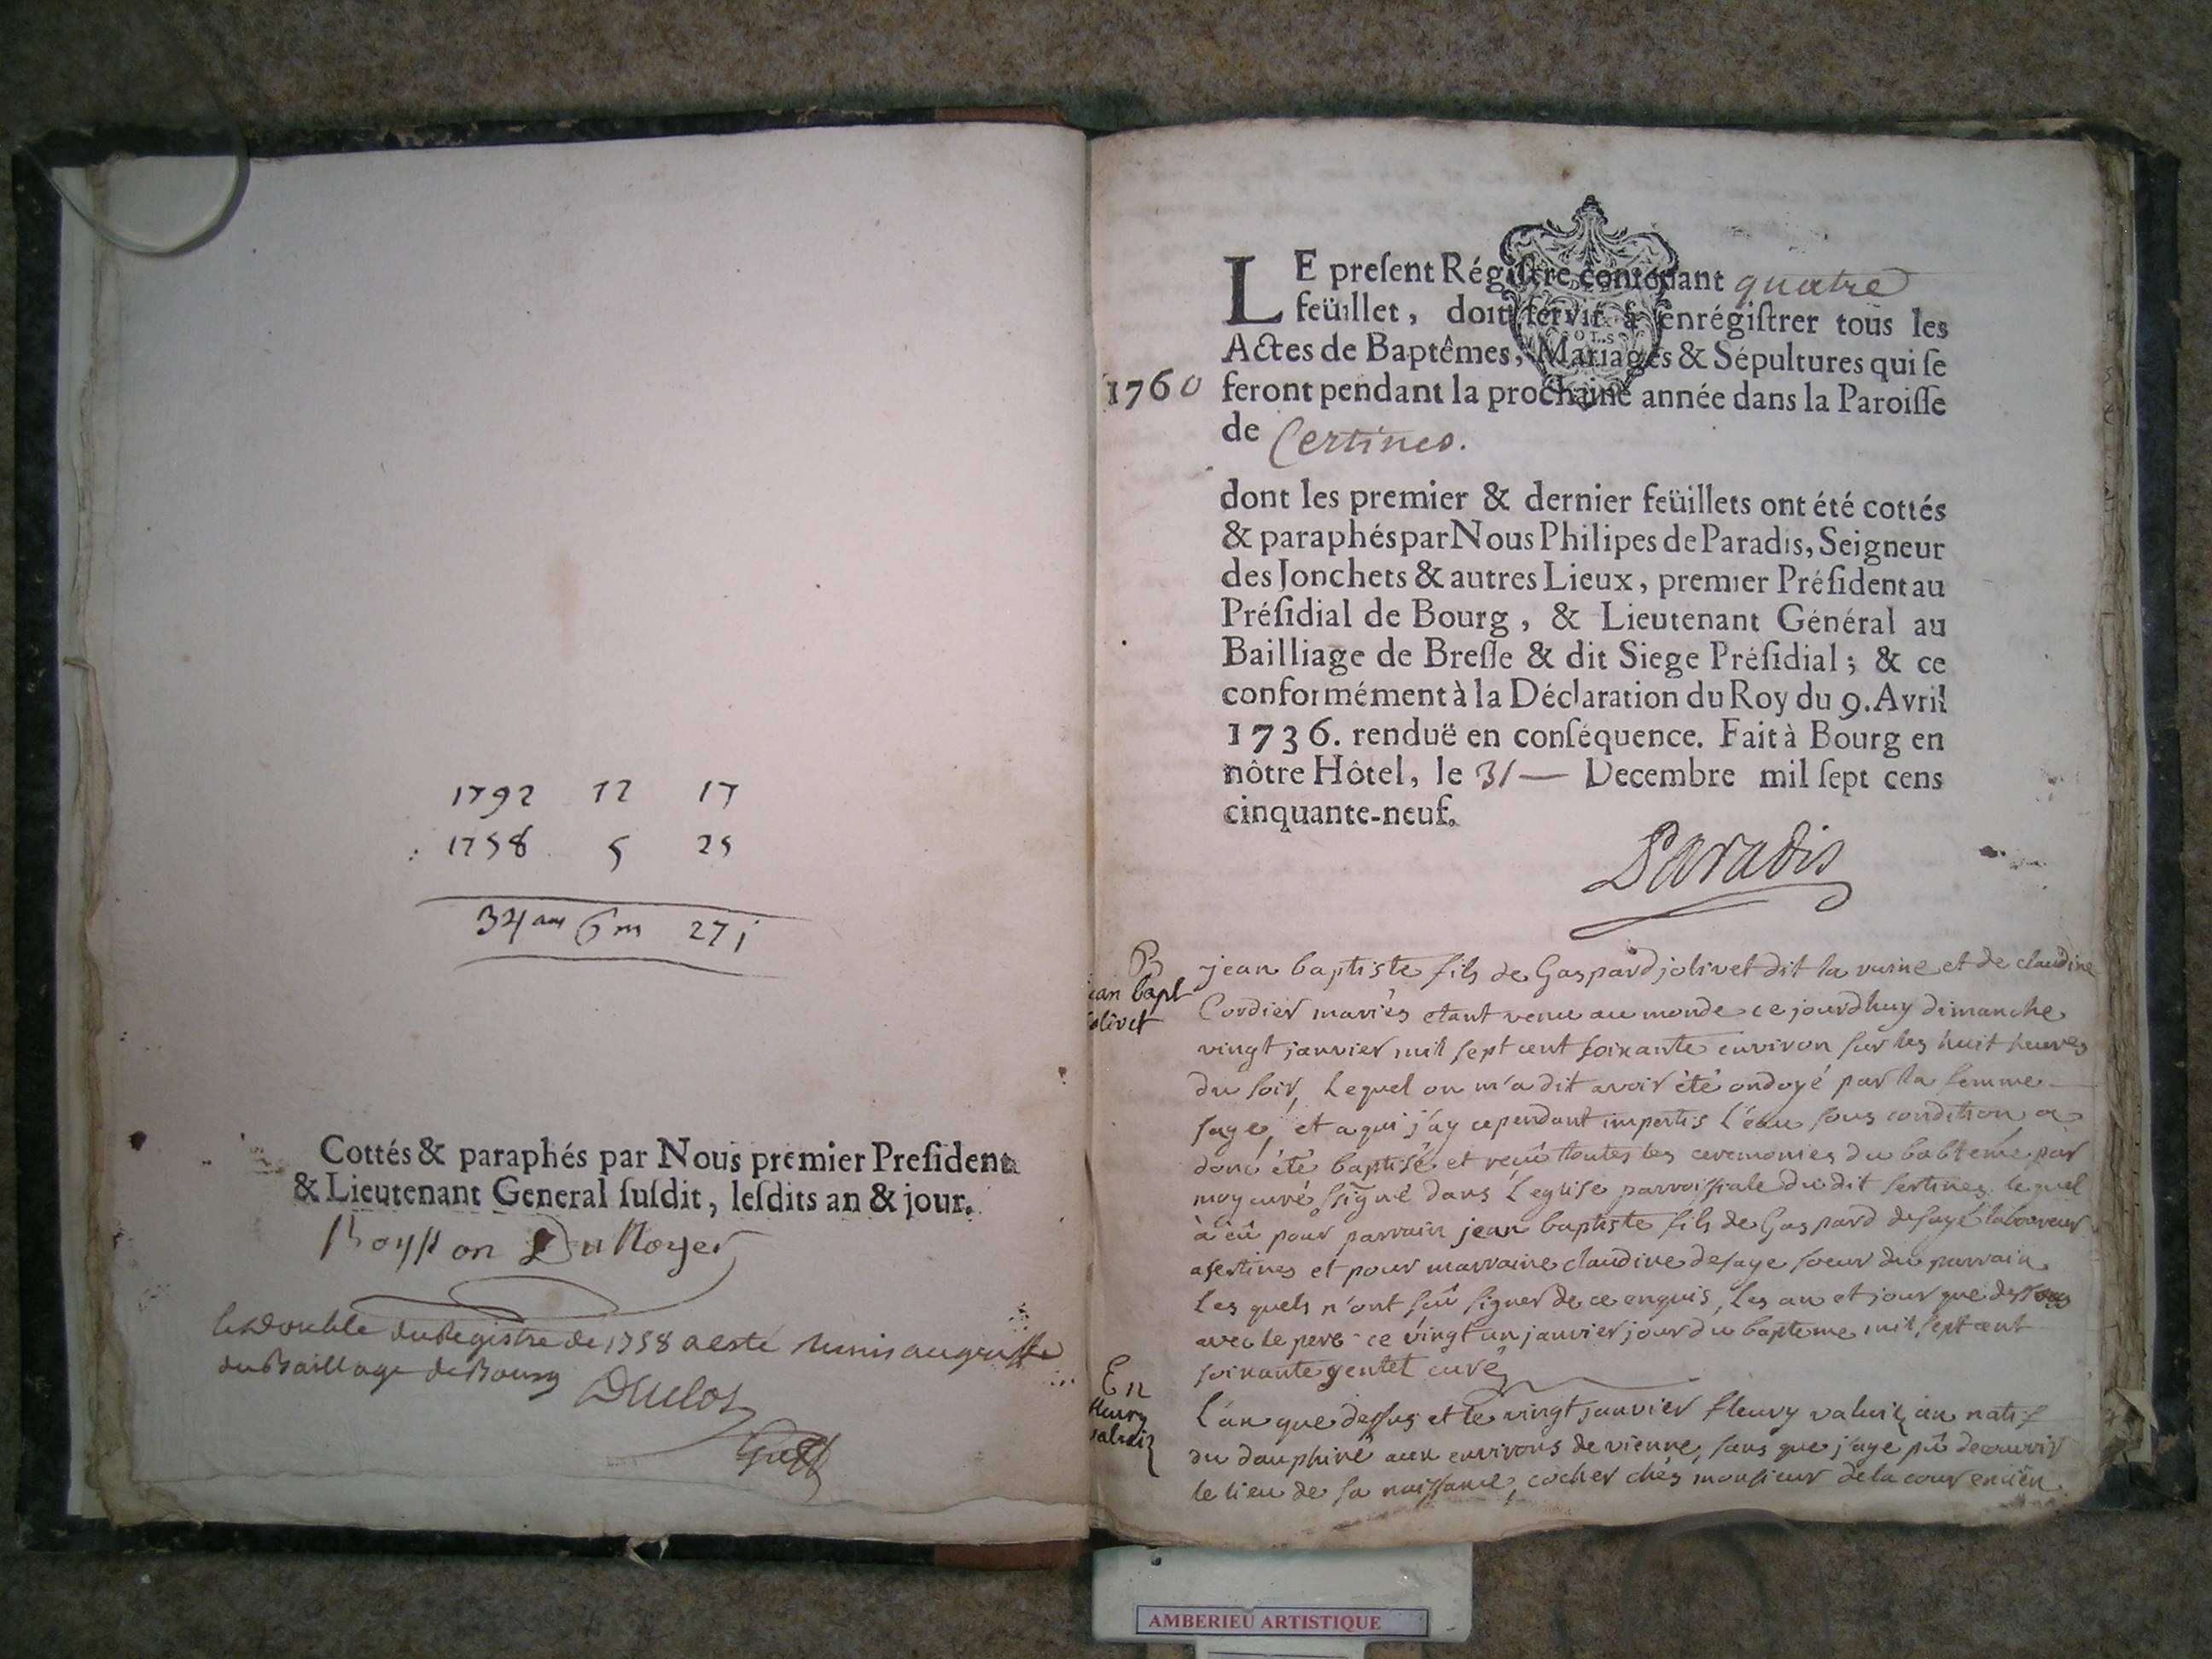 1792 12 17
1758 5 25
34 ans 6 m 27 j
Cottés & paraphés par Nous premier Preſident
& Lieutenant General ſuſdit, leſdits an & jour.
le double du Registre de 1758 a esté remis au greffe
du Baillage de Bourg
Duclos
Greff
LE preſent Régiſtre contenant quatre
feüillet, doit ſervir à enrégiſtrer tous les
Actes de Baptêmes, Mariages & Sépultures qui ſe
1760 feront pendant la prochaine année dans la Paroiſſe
de Certines.
dont les premier & dernier feüillets ont été cottés
& paraphés par Nous Philipes de Paradis, Seigneur
des Jonchets & autres Lieux, premier Préſident au
Préſidial de Bourg, & Lieutenant Général au
Bailliage de Breſſe & dit Siege Préſidial; & ce
conformément à la Déclaration du Roy du 9. Avril
1736. renduë en conſéquence. Fait à Bourg en
nôtre Hôtel, le 31 — Decembre mil ſept cens
cinquante-neuf.
Paradis
B
jean bapt
jolivet
jean baptiste fils de Gaspard jolivet dit la et de claudine
Cordier mariés etant venu au monde ce jourdhuy dimanche
vingt janvier mil sept cent soixante environ sur les huit heures
du soir, lequel on m'a dit avoir été ondoyé par la femme
sage, et a qui j'ay cependant impertis l'eau sous condition a
donc été baptisé et reçû toutes les ceremonies du babteme par
moy curé ssigné dans l'eglise parroissiale du dit sertines lequel
à eû pour parrain jean baptiste fils de Gaspard desaye laboureur
a sertines et pour marraine claudine desaye soeur du parrain
les quels n'ont sçû signer de ce enquis, les an et jour que dessous
avec le pere ce vingt un janvier jour du bapteme mil sept cent
soixante gentet curé
En
fleury
valuiz
L'an que dessus et le vingt janvier fleury valuiz un natif
du dauphiné aux environs de vienne, sans que j'aye pû decouvrir
le lieu de sa naissance, cocher chés monsieur de la cour
AMBERIEU ARTISTIQUE